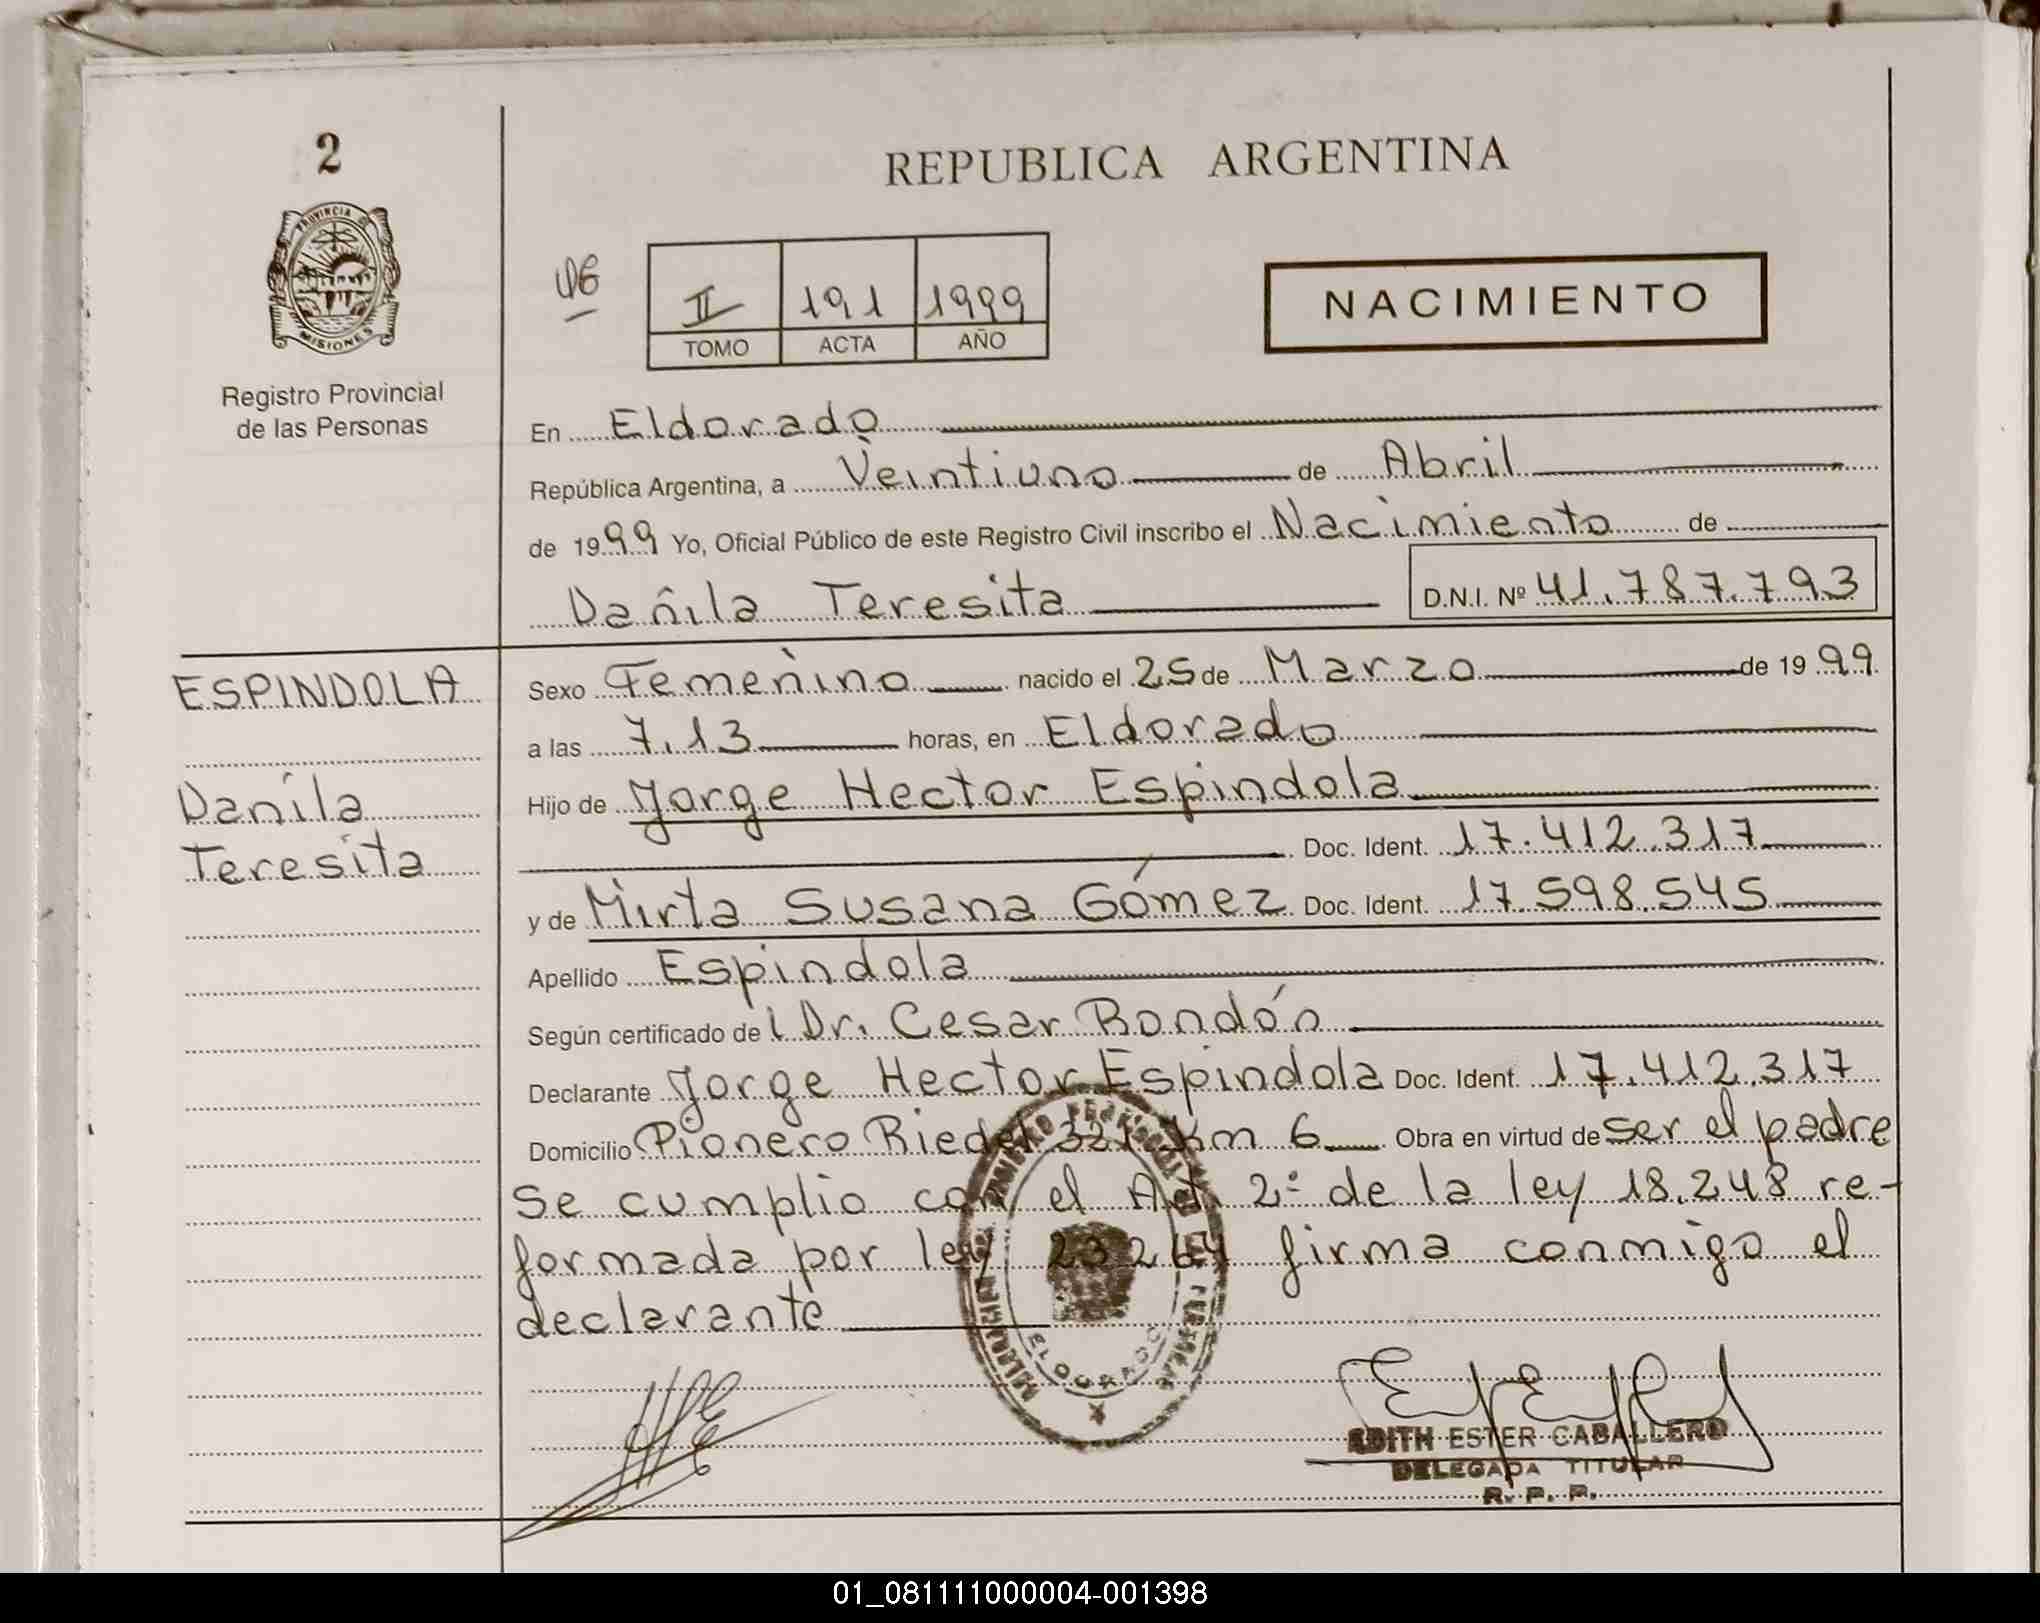 2
REPUBLICA ARGENTINA
PROVINCIA DE
MISIONES
Registro Provincial
de las Personas
II 191 1999
TOMO ACTA AÑO
NACIMIENTO
En Eldorado
República Argentina, a Veintiuno de Abril
de 1999 Yo, Oficial Público de este Registro Civil inscribo el Nacimiento de
Danila Teresita D.N.I. Nº 41.787.793
ESPINDOLA
Danila
Teresita
Sexo Femenino nacido el 25 de Marzo de 1999
a las 7.13 horas, en Eldorado
Hijo de Jorge Hector Espindola
Doc. Ident. 17.412.317
y de Mirta Susana Gómez Doc. Ident. 17.598.545
Apellido Espindola
Según certificado de l Dr. Cesar Rondón
Declarante Jorge Hector Espindola Doc. Ident. 17.412.317
Domicilio Pionero Riedel 321 Km 6 Obra en virtud de ser el padre
Se cumplio con el Art 2º de la ley 18.248 re-
formada por ley 23264 firma conmigo el
declarante
ELDORADO
EDITH ESTER CABALLERO
DELEGADA TITULAR
R. P. P.
01_081111000004-001398